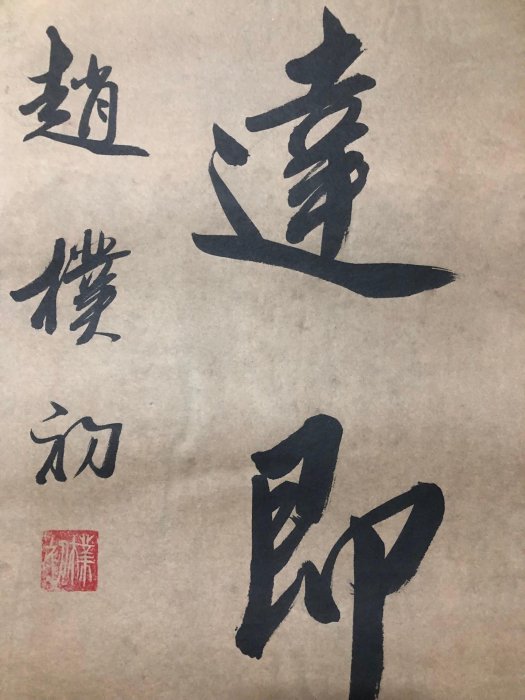 達即
趙樸初
樸初